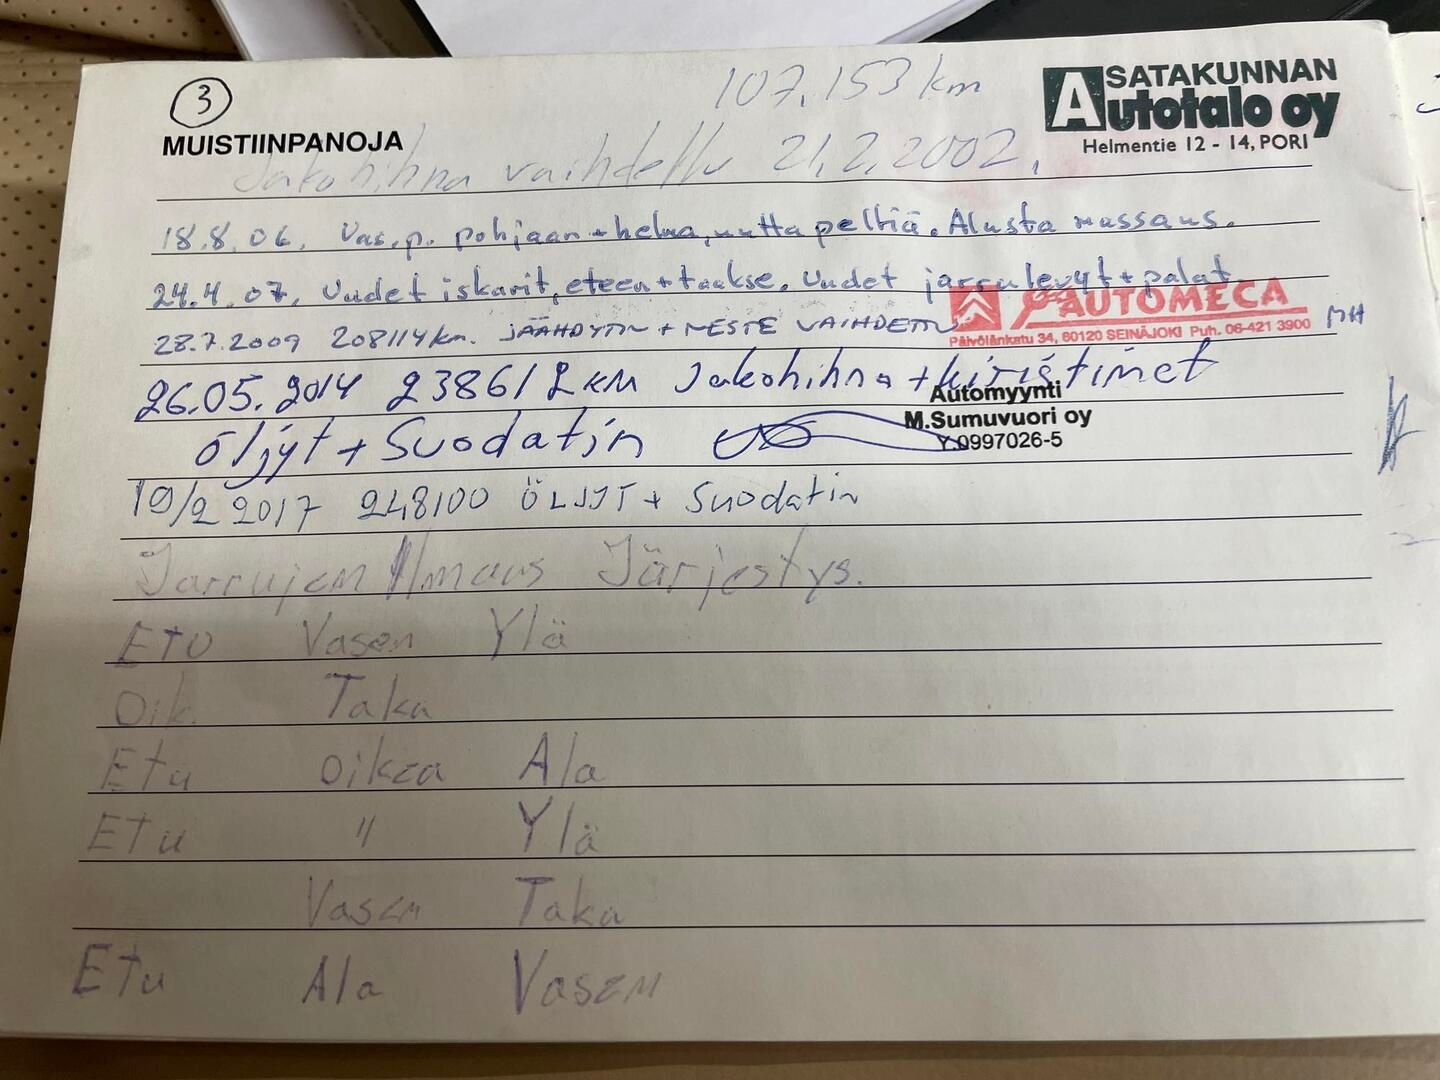 3
107.153 km
SATAKUNNAN
Autotalo oy
Helmentie 12 - 14, PORI
MUISTIINPANOJA
Jakohihna vaihdettu 21.2.2002.
18.8.06. Vas.p. pohjaan + helma, uutta peltiä. Alusta massaus.
24.4.07. Uudet iskarit, eteen + taakse. Uudet jarrulevyt + palat.
AUTOMECA
Päivölänkatu 34, 60120 SEINÄJOKI Puh. 06-421 3900
28.7.2009 208114 km. JÄÄHDYTIN + NESTE VAIHDETTU MH
26.05.2014 238612 KM Jakohihna + kiristimet
Automyynti
M.Sumuvuori oy
Y.0997026-5
öljyt + Suodatin
19/2 2017 248100 ÖLJYT + Suodatin
Jarrujen Ilmaus Järjestys.
Etu Vasen Ylä
Oik. Taka
Etu oikea Ala
Etu " Ylä
Vasen Taka
Etu Ala Vasen